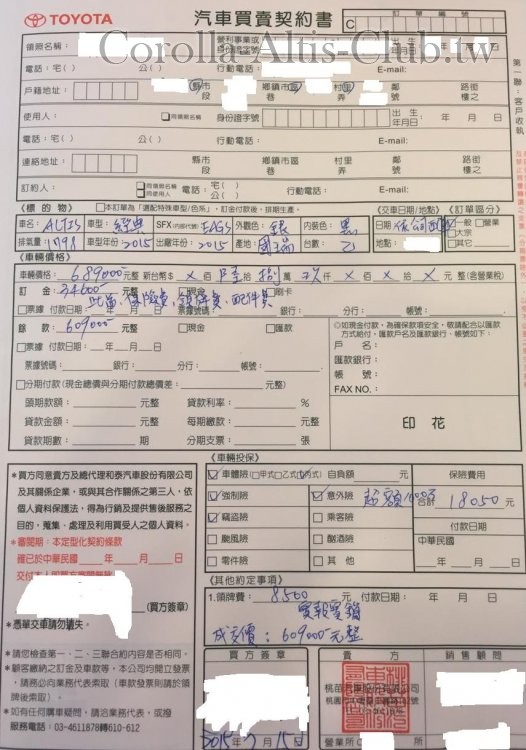 TOYOTA
汽車買賣契約書
訂單編號
C
Corolla Altis-Club.tw
第一聯：客戶收執
領照名稱：
營利事業或
身份證字號
出生
年月日
年 月 日
電話：宅( ) 公( ) 行動電話： E-mail:
戶籍地址：
縣市 鄉鎮市區 村里 鄰 路街
段 巷 弄 號 樓之
使用人： 同領照名稱 身份證字號
出生
年月日：
年 月 日
電話：宅( ) 公( ) 行動電話： E-mail:
連絡地址：
縣市 鄉鎮市區 村里 鄰 路街
段 巷 弄 號 樓之
訂約人：
同領照名稱
同使用人
電話： 行動電話： E-mail:
《標的物》 本訂單為「選配特殊車型/色系」，訂金付款後，排期生產。
《交車日期/地點》 《訂單區分》
車名：ALTIS 車型：經典 SFX(內部代號) EAGS 外觀色：銀 內裝色：黑
日期 依公司 一般 營業
排氣量：1798 車型年份：2015 出廠年份：2015 產地：國瑞 台數：乙
地點： 大宗
其它
《車輛價格》
車輛價格：689000元 新台幣$ X 佰 陸 拾 捌 萬 玖 仟 X 佰 X 拾 X 元 整(含營業稅)
訂金：34600元 現金 刷卡
票據 付款日期： 年 月 日 票據號碼： 銀行： 分行： 帳號：
此為保險費、領牌費、配件費
餘款：609000元 現金 匯款
票據 付款日期： 年 月 日
票據號碼： 銀行： 分行： 帳號：
◎如現金付款，為確保款項安全，敬請配合以匯款
方式給付，匯款戶名及匯款銀行、帳號如下：
戶名：
匯款銀行：
帳號：
FAX NO.：
分期付款 (現金總價與分期付款總價差： 元整)
頭期款額： 元整 貸款利率： %
貸款金額： 元整 每期繳款： 元整
貸款期數： 期 分期支票： 張
印花
《車輛投保》
車體險(甲式乙式丙式) 自負額 元
保險費用
強制險 意外險 超額1600萬
合計 18050 元
竊盜險 乘客險
付款日期
颱風險 酗酒險
中華民國
零件險 其他
年 月 日
*買方同意貴方及總代理和泰汽車股份有限公司
及其關係企業，或與其合作關係之第三人，依
個人資料保護法，得為行銷及提供售後服務之
目的，蒐集、處理及利用買受人之個人資料。
*審閱期：本定型化契約條款
確已於中華民國 年 月 日
(買方簽章)
*憑單交車請勿遺失。
《其他約定事項》
1.領牌費：8500 元 付款日期： 年 月 日
實報實銷
成交價：609000元整
*請您檢查第一、二、三聯合約內容是否相同。
*顧客繳納之訂金及車款等，本公司均開立發票
，請務必向業務代表索取（車款發票則請於領
牌後索取）。
*如有任何購車疑問，請洽業務代表，或撥
服務電話：03-4611878轉610-612
買方簽章
2015年7月15日
貴方
桃苗汽車股份有限公司
營業所
銷售顧問